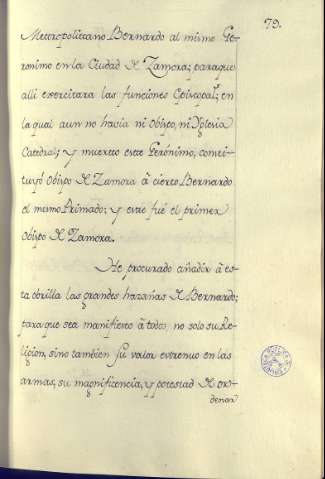 79.
Metropolitano Bernardo al mismo Ge-
ronimo en la Ciudad de Zamora; paraque
alli exercitara las funciones Episcopal.s; en
la qual aun no havia ni Obispo, ni Yglesia
Catedral; y muerto este Gerónimo, consti-
tuyó Obispo de Zamora â cierto Bernardo
el mismo Primado; y este fué el primer
Obispo de Zamora.
He procurado añadir â es-
ta obrilla las grandes hazañas de Bernardo;
para que sea manifiesto â todos, no solo su Re-
ligion, sino tambien su valor extremo en las
armas, su magnificencia, y potestad de or-
denar